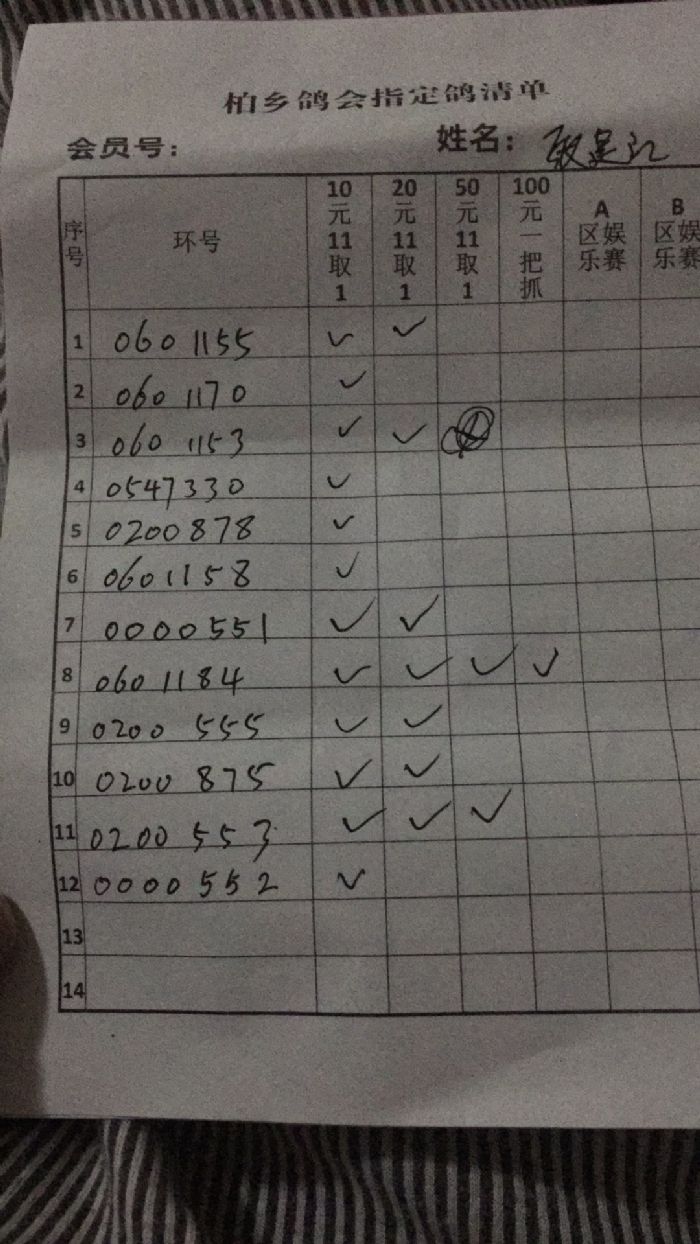 柏乡鸽会指定鸽清单
会员号： 姓名：
序号 环号 10元11取1 20元11取1 50元11取1 100元一把抓 A区娱乐赛 B区娱乐赛
1 0601155 ✓ ✓
2 0601170 ✓
3 0601153 ✓ ✓
4 0547330 ✓
5 0200878 ✓
6 0601158 ✓
7 0000551 ✓ ✓
8 0601184 ✓ ✓ ✓ ✓
9 0200555 ✓ ✓
10 0200875 ✓ ✓
11 0200553 ✓ ✓ ✓
12 0000552 ✓
13
14